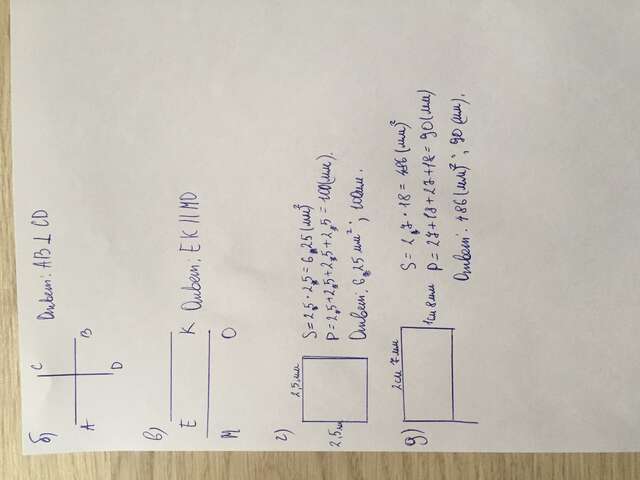 б)
C
A
B
D
Ответ: AB ⊥ CD
в)
E
K
M
O
Ответ: EK || MO
г)
2,5 мм
2,5 м
S = 25 · 25 = 625 (мм²)
P = 25 + 25 + 25 + 25 = 100 (мм).
Ответ: 625 мм²; 100мм.
д)
2см 7мм
1см 8мм
S = 27 · 18 = 486 (мм²
P = 27 + 18 + 27 + 18 = 90 (мм)
Ответ: 486 (мм²); 90 (мм).